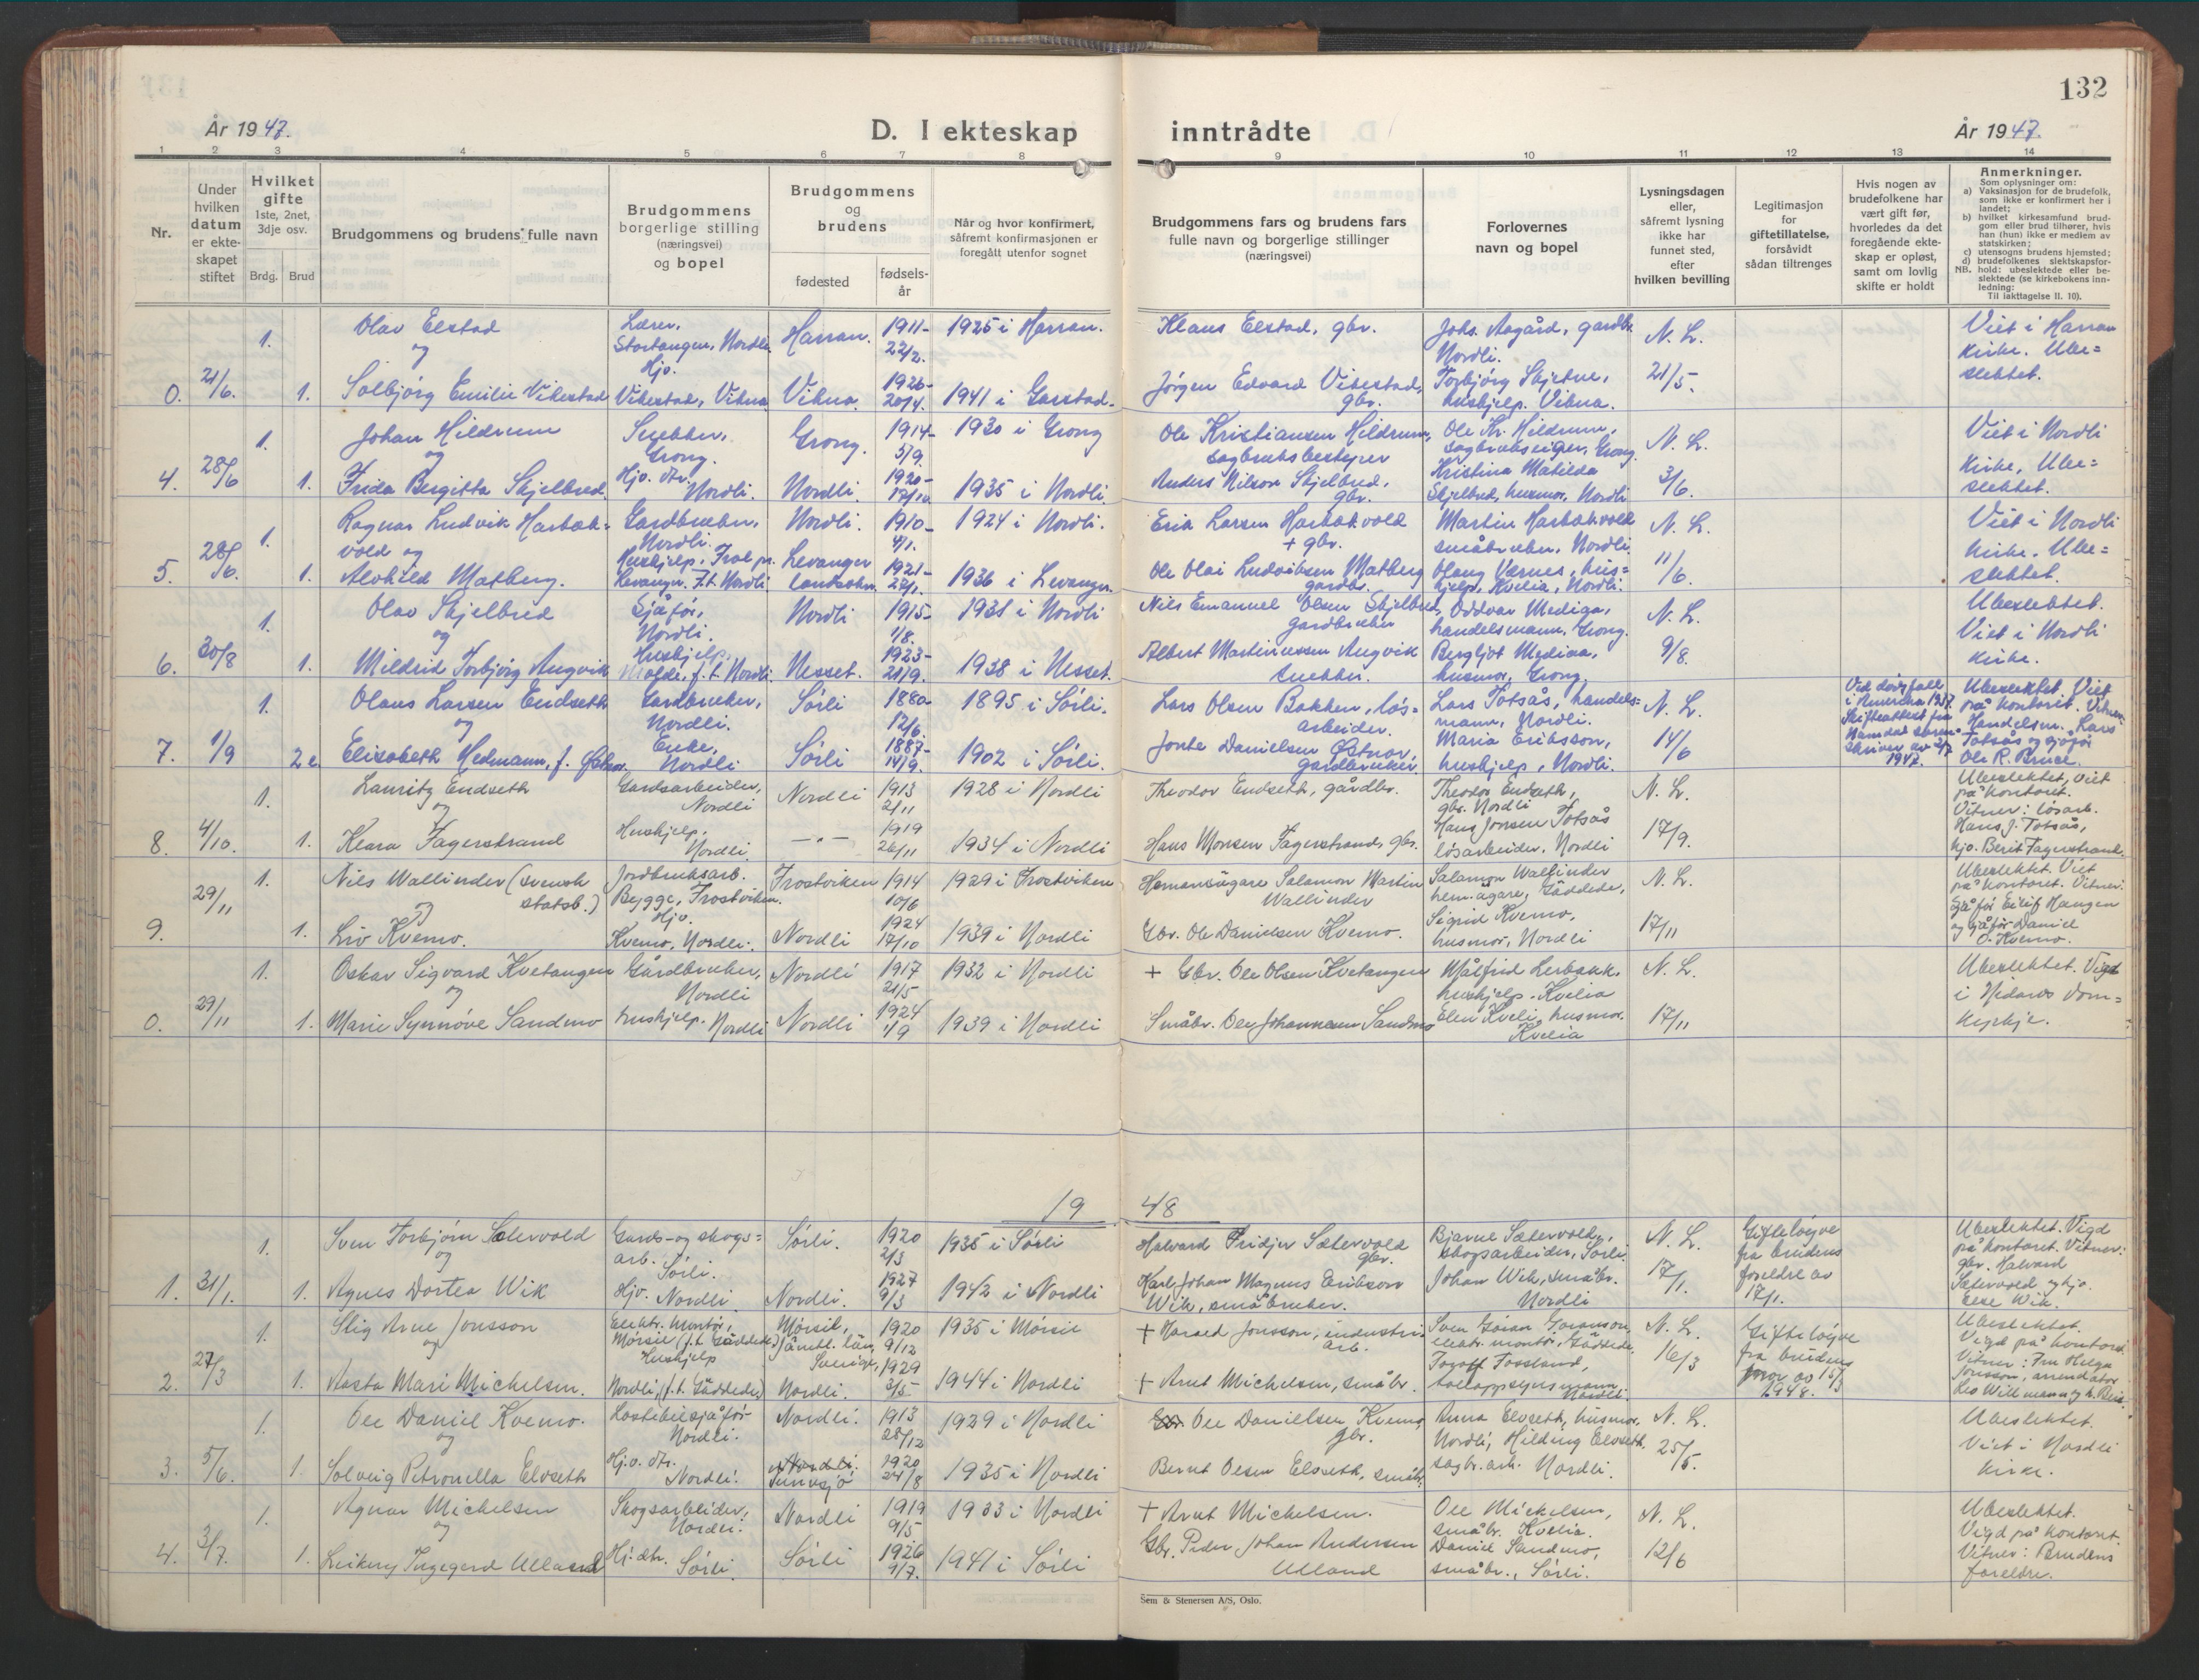 132
År 1947.
D. I ekteskap inntrådte
År 1947.
1 2 3 4 5 6 7 8 9 10 11 12 13 14
Nr.
Under hvilken datum er ekteskapet stiftet
Hvilket gifte 1ste, 2net, 3dje osv.
Brdg. Brud
Brudgommens og brudens fulle navn
Brudgommens borgerlige stilling (næringsvei) og bopel
Brudgommens og brudens
fødested
fødsels-år
Når og hvor konfirmert, såfremt konfirmasjonen er foregått utenfor sognet
Brudgommens fars og brudens fars fulle navn og borgerlige stillinger (næringsvei)
Forlovernes navn og bopel
Lysningsdagen eller, såfremt lysning ikke har funnet sted, efter hvilken bevilling
Legitimasjon for giftetillatelse, forsåvidt sådan tiltrenges
Hvis nogen av brudefolkene har vært gift før, hvorledes da det foregående ekteskap er opløst, samt om lovlig skifte er holdt
Anmerkninger.
Som oplysninger om:
a) Vaksinasjon for de brudefolk, som ikke er konfirmert her i landet;
b) hvilket kirkesamfund brudgom eller brud tilhører, hvis han (hun) ikke er medlem av statskirken;
c) utensogns brudens hjemsted;
d) brudefolkenes slektskapsforhold: ubeslektede eller beslektede (se kirkebokens innledning:
NB.
Til iakttagelse II. 10).
0. 21/6. 1. Olav Elstad Lærer, Harran. 1911-22/2. 1925 i Harran. Klaus Elstad, gbr. Johs. Aagård, gardbr. Nordli. N. L. 21/5- Viet i Harran kirke. Ubeslektet.
og
1. Solbjørg Emilie Vikestad Hjv. Vikestad, Vikna Vikna. 1926-20/4. 1941 i Garstad. Jørgen Edvard Vikestad, gbr. Torbjørg Skjetne, hushjelp. Vikna.
4. 28/6 1. Johan Hildrum Snekker, Grong. Grong. 1914-5/9. 1930 i Grong Ole Kristiansen Hildrum, sagbruksbestyrer Ole Kr. Hildrum, sagbrukseiger, Grong. N. L. 3/6. Viet i Nordli kirke, Ubeslektet.
og
1. Frida Bergitta Skjelbred. Hjv. dtr. Nordli. Nordli. 1920-17/10. 1935 i Nordli. Anders Nilson Skjelbred, gbr. Kristina Matilda Skjelbred, husmor, Nordli
5. 28/6. 1. Ragnar Ludvik Harbakvold og Gardbruker, Nordli. Nordli. 1910-4/1. 1924 i Nordli. Erik Larsen Harbakvold + gbr. Martin Harbakvold småbruker, Nordli. N. L. 11/6. Viet i Nordli kirke. Ubeslektet.
1. Alvhild Matberg. Hushjelp, Levanger. f.t. Nordli Levanger landsokn. 1921-27/1. 1936 i Levanger. Ole Olai Ludviksen Matberg gardbr. Olaug Værnes, hushjelp, Kvelia, Nordli.
6. 30/8 1. Olav Skjelbred Sjåfør, Nordli. Nordli 1915-1/8. 1931 i Nordli Nils Emanuel Olsen Skjelbred, Gardbruker Oddvar Mediaa, handelsmann, Grong. N. L. 9/8. Ubeslektet. Viet i Nordli kirke.
og
1. Mildrid Torbjørg Angvik Hushjelp, Molde, f.t. Nordli. Nesset. 1923-21/9. 1938 i Nesset. Albert Martinussen Angvik snekker. Bergljot Mediaa, husmor, Grong.
7. 1/9 1. Olaus Larsen Endseth Gardbruker, Nordli. Sørli 1880-12/6. 1895 i Sørli. Lars Olsen Bakken, løsarbeider. Lars Totsås, handelsmann, Nordli. N. L. 14/6 Ved dødsfall i Amerika 1937. Skifteattest fra Namdal sorenskriver av 2/7 1947. Ubeslektet. Viet på kontoret. Vitner: Handelsm. Lars Totsås og sjåfør Ole R. Bruce.
og
2 Elisabeth Hedmann, f. Enke, Nordli Sørli 1887-14/9. 1902 i Sørli. Jonte Danielsen Østnor, gardbruker. Maria Eriksson, hushjelp, Nordli.
8. 4/10. 1. Lauritz Endseth Gardsarbeider, Nordli Nordli 1913 2/11 1928 i Nordli Theodor Endseth, gårdbr. Theodor Endseth, gbr. Nordli N. L. 17/9. Ubeslektet, viet på kontoret. Vitner: løsarb. Hans J. Totsås, hjv. Berit Fagerstrand.
og
1. Klara Fagerstrand Hushjelp, Nordli. —"— 1919 26/11 1934 i Nordli Hans Monsen Fagerstrand, gbr. Hans Jonsen Totsås løsarbeider, Nordli
9. 29/11 1. Nils Wallinder (svensk statsb.) Jordbruksarb. Frostviken. Frostviken 1914 10/6 1929 i Frostviken Hemansägare Salamon Martin Wallinder Salamon Wallinder hem. ägare, Gäddede, N. L. 17/11 Ubeslektet. Viet på kontoret. Vitner: Sjåfør Eilif Haugen og sjåfør Daniel O. Kvemo.
1. Liv Kvemo. Hjv. Kvemo, Nordli. Nordli 1924 17/10 1939 i Nordli Gbr. Ole Danielsen Kvemo. Sigrid Kvemo, husmor, Nordli
0. 29/11 1. Oskar Sigvard Kvetangen Gårdbruker, Nordli Nordli 1917 21/5 1932 i Nordli + Gbr. Ole Olsen Kvetangen Målfrid Lerbakk. hushjelp. Kvelia N. L. 17/11 Ubeslektet. Vigd i Nidaros domkyrkje.
og
1. Marie Synnøve Sandmo hushjelp. Nordli Nordli 1924 1/9 1939 i Nordli Småbr. Ole Johannesen Sandmo Elen Kveli, husmor. Kvelia
19 48
1. 31/1. 1. Sven Torbjørn Sætervold Gards- og skogsarb. Sørli. Sørli. 1920 2/3 1935 i Sørli Halvard Fridjer Sætervold gbr. Bjarne Sætervold, skogsarbeider, Sørli. N. L. 17/1. Gifteløyve fra brudens foreldre av 17/1. Ubeslektet. Vigd på kontoret. Vitner: gbr. Halvard Sætervold og hjv. Else Wik.
og
1. Agnes Dortea Wik Hjv. Nordli Nordli. 1927 9/3 1942 i Nordli Karl Johan Magnus Erikson Wik, småbruker. Johan Wik, småbr. Nordli
2. 27/3 1. Stig Arne Jonsson Elektr. montør, Mørsil (f.t. Gäddede) Mørsil, Jämtl. län, Sverige, 1920 9/12 1935 i Mørsil + Harald Jonsson, industriarb. Sven Göran Göranson, elektr. montør, Gäddede, N. L. 16/3 Gifteløyve fra brudens mor av 15/3 1948. Ubeslektet. Vigd på kontoret Vitner: Fru Helga Jonsson, arrendator
og
1. Aasta Mari Michelsen. Hushjelp Nordli, (f.t. Gäddede.) Nordli. 1929 3/5- 1944 i Nordli + Arnt Michelsen, småbr. Toralf Fossland, tolloppsynsmann Nordli.
3. 5/6. 1. Ole Daniel Kvemo. Lastebilsjåfør Nordli. Nordli. 1913 28/12 1929 i Nordli Ole Daniellsen Kvemo gbr. Anna Elvseth, husmor, Nordli, Hilding Elvseth, sagbr. arb. Nordli. N. L. 25/5. Ubeslektet. Viet i Nordli kirke.
og
1. Solveig Petronella Elvseth Hjv. dtr. Nordli. Nordli. Tunnsjø 1920 24/8 1935 i Nordli Bernt Olsen Elvseth, småbr.
4. 3/7. 1. Agnar Michelsen Skogsarbeider, Nordli. Nordli 1919 9/5 1933 i Nordli + Arnt Michelsen. Ole Mickelsen, småbr. Kvelia. N. L. 12/6 Ubeslektet. Vigd på kontoret. Vitner: Brudens foreldre.
og
1. Leikny Ingegerd Ulland Hj. dtr. Sørli. Sørli 1926 1/7. 1941 i Sørli Gbr. Peder Johan Andersen Ulland Daniel Sandmo, småbr., Sørli.
Sem & Stenersen A/S, Oslo.